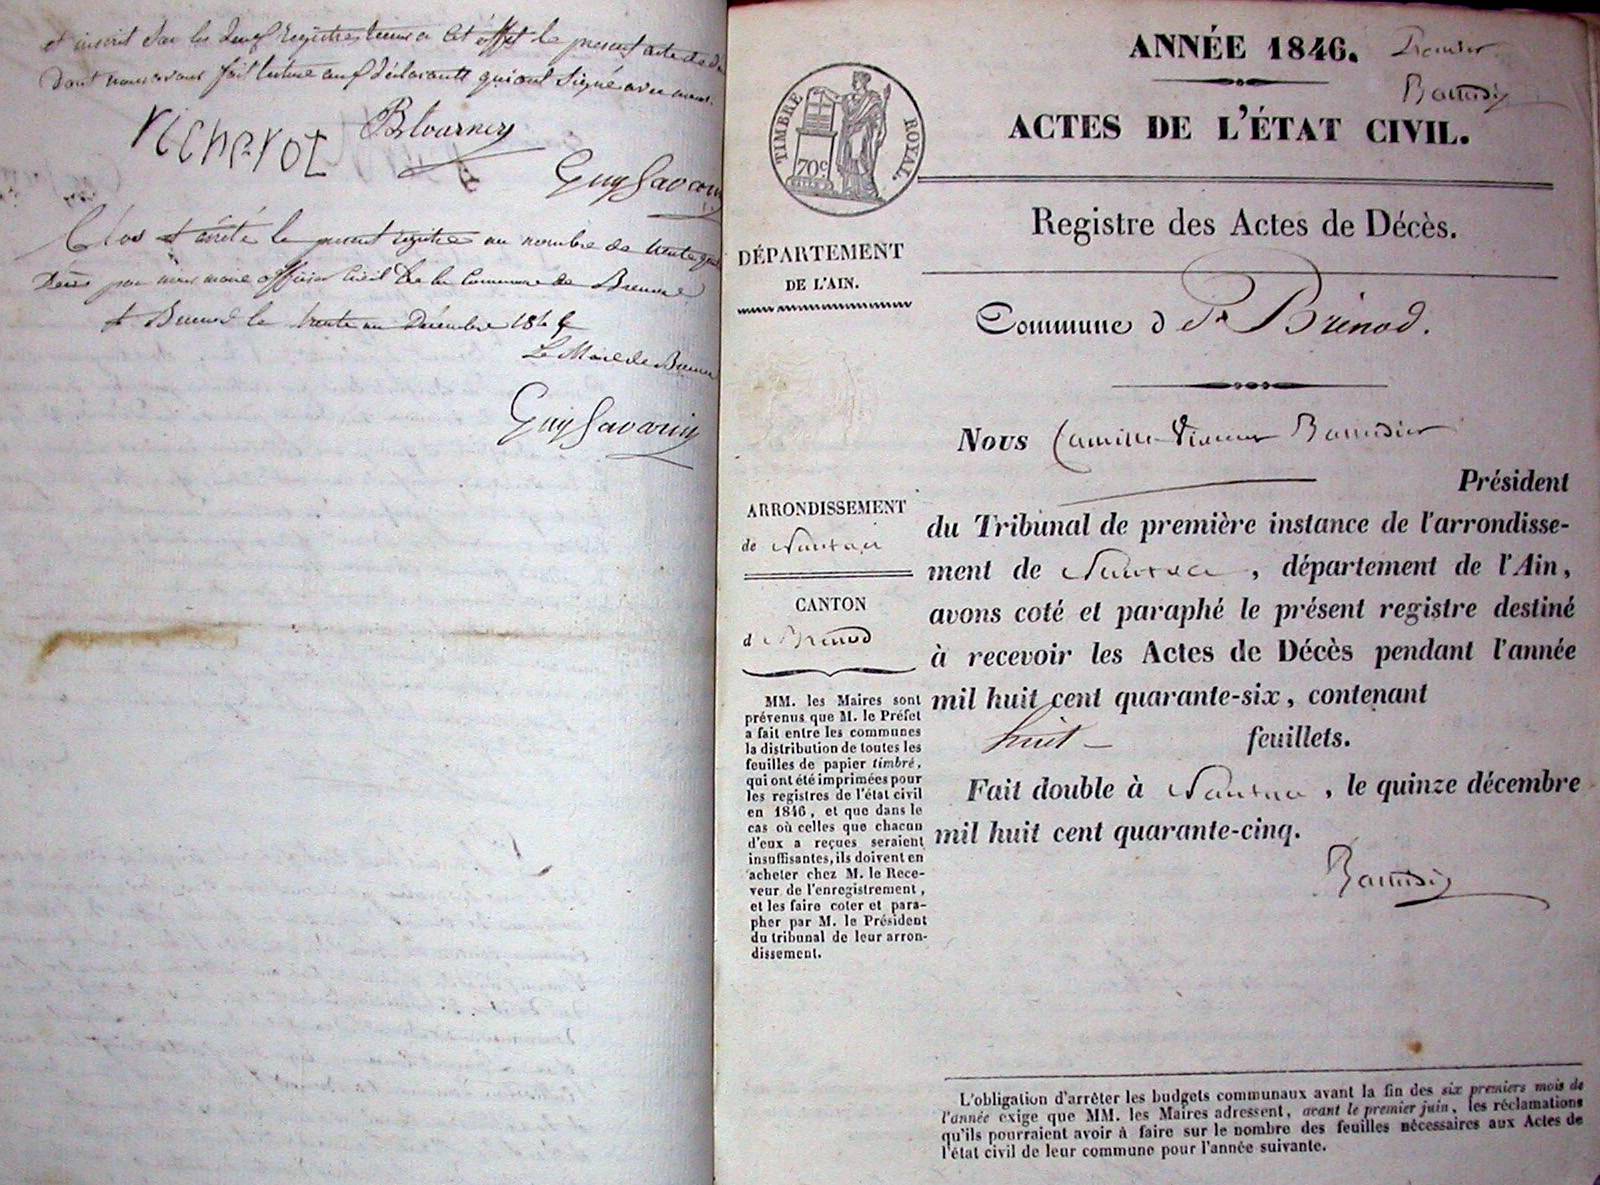 et inscrit sur les deux registres tenus a cet effet le présent acte de
dont nous avons fait lecture aux déclarants qui ont signé avec nous.
richerot
Blournery
Guy Savarin
Clos et arrêté le présent registre au nombre de trente
Décès par nous maire officier civil de la Commune de Brenod
A Brenod le trente un Décembre 1845
Le Maire de Brenod
Guy Savarin
ANNÉE 1846. Premier
ACTES DE L'ÉTAT CIVIL.
TIMBRE ROYAL.
70c
Registre des Actes de Décès.
DÉPARTEMENT
DE L'AIN.
Commune de Brénod.
Nous Camille
Président
ARRONDISSEMENT
de Nantua
CANTON
d Brénod
du Tribunal de première instance de l'arrondisse-
ment de Nantua, département de l'Ain,
avons coté et paraphé le présent registre destiné
à recevoir les Actes de Décès pendant l'année
mil huit cent quarante-six, contenant
huit feuillets.
Fait double à Nantua, le quinze décembre
mil huit cent quarante-cinq.
MM. les Maires sont
prévenus que M. le Préfet
a fait entre les communes
la distribution de toutes les
feuilles de papier timbré,
qui ont été imprimées pour
les registres de l'état civil
en 1846, et que dans le
cas où celles que chacun
d'eux a reçues seraient
insuffisantes, ils doivent en
acheter chez M. le Rece-
veur de l'enregistrement,
et les faire coter et para-
pher par M. le Président
du tribunal de leur arron-
dissement.
L'obligation d'arrêter les budgets communaux avant la fin des six premiers mois de
l'année exige que MM. les Maires adressent, avant le premier juin, les réclamations
qu'ils pourraient avoir à faire sur le nombre des feuilles nécessaires aux Actes de
l'état civil de leur commune pour l'année suivante.